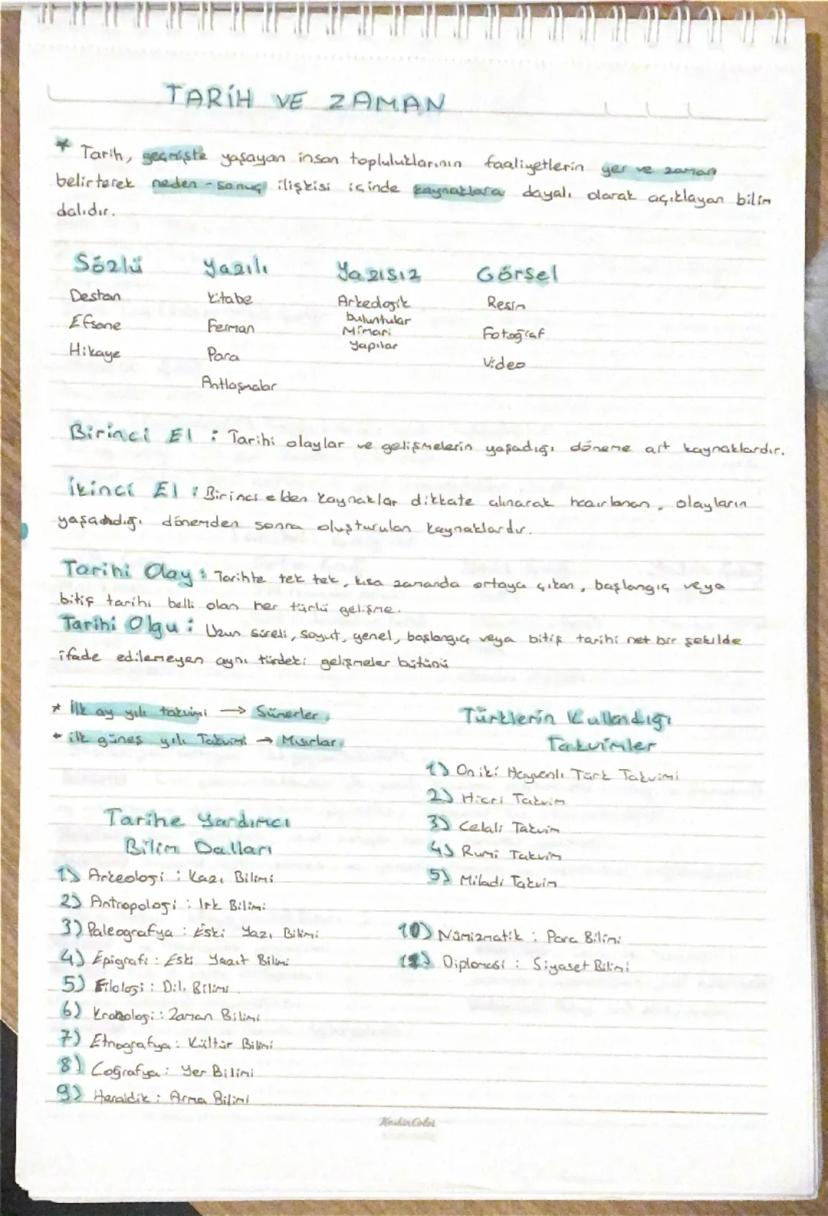 TARİH VE ZAMAN
* Tarih, geçmişte yaşayan insan topluluklarının faaliyetlerin yer ve zaman
belirterek neden-sonuç ilişkisi içinde kaynaklara dayalı olarak açıklayan bilim
dalıdır.
Sözlü
Destan
Efsane
Hikaye
Yazılı
Kitabe
Ferman
Para
Antlaşmalar
Yazısız
Arkeolojik
buluntular
Mimari
Yapılar
Görsel
Resim
Fotoğraf
Video
Birinci El : Tarihi olaylar ve gelişmelerin yaşadığı döneme ait kaynaklardır.
İkinci El : Birinci elden kaynaklar dikkate alınarak hazırlanan, olayların
yaşandığı dönemden sonra oluşturulan kaynaklardır.
Tarihi Olay : Tarihte tek tek, kısa zamanda ortaya çıkan, başlangıç veya
bitiş tarihi belli olan her türlü gelişme.
Tarihi Olgu : Uzun süreli, soyut, genel, başlangıç veya bitiş tarihi net bir şekilde
ifade edilemeyen aynı türdeki gelişmeler bütünü
* İlk ay yılı takvimi → Sümerler.
* ilk güneş yılı Takvimi → Mısırlar.
Türklerin Kullandığı
Takvimler
1) Oniki Hayvanlı Türk Takvimi
2) Hicri Takvim
3) Celali Takvim
4) Rumi Takvim
5) Miladi Takvim
Tarihe Yardımcı
Bilim Dalları
1) Arkeoloji : Kazı Bilimi
2) Antropoloji : Irk Bilimi
3) Paleografya : Eski Yazı Bilimi
4) Epigrafi : Eski Yazıt Bilimi
5) Filoloji : Dil Bilimi
6) Kronoloji : Zaman Bilimi
7) Etnografya : Kültür Bilimi
8) Coğrafya : Yer Bilimi
9) Heraldik : Arma Bilimi
10) Nümizmatik : Para Bilimi
11) Diplomasi : Siyaset Bilimi
KeskinColor